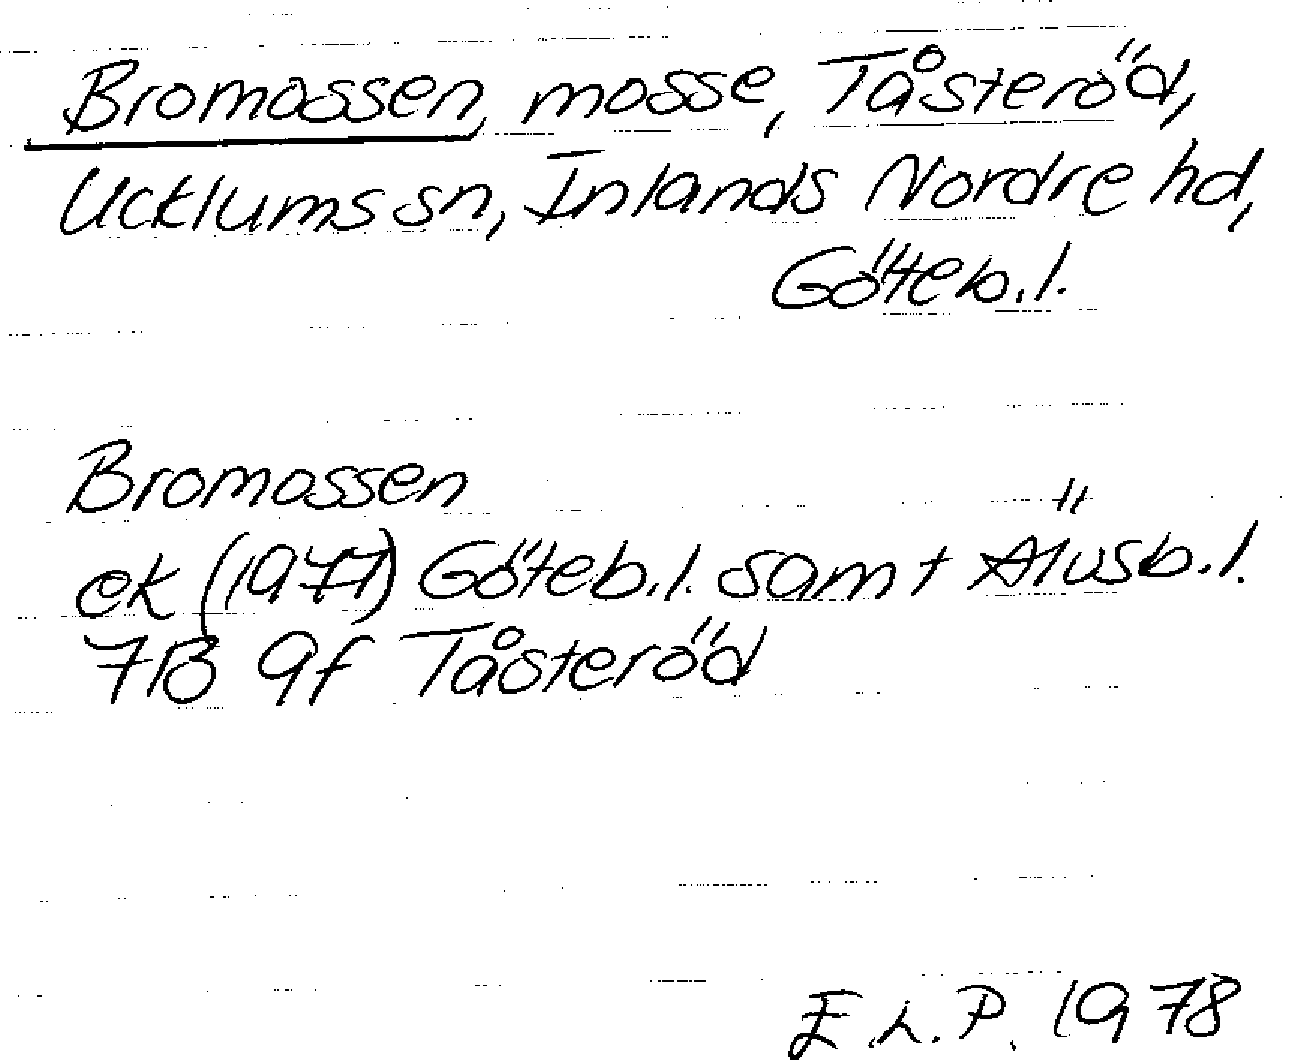 Bromossen, mosse, Tåsteröd,
Ucklums sn, Inlands Nordre hd,
Göteb.l.
Bromossen
ek (1977) Göteb.l. samt Älvsb.l.
7B 9f Tåsteröd
E.L.P. 1978